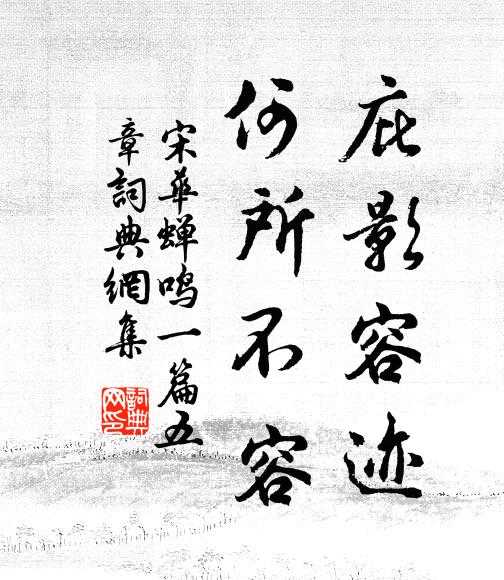 庇影容迹
何所不容
宋华蝉鸣一篇五
章詞典網集
詞典
网印